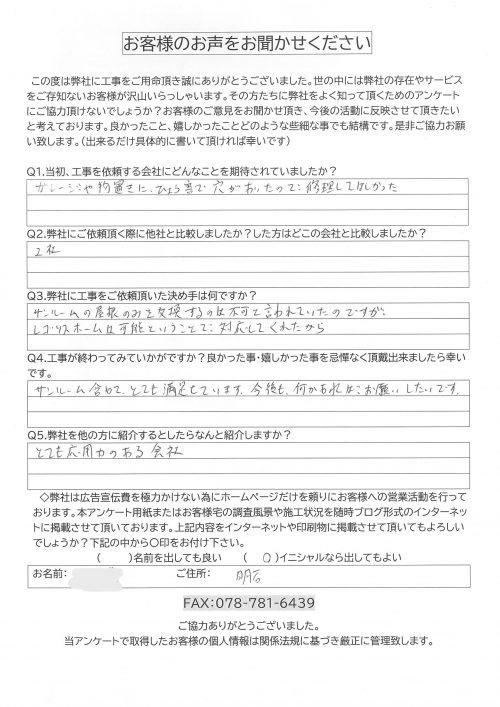 お客様のお声をお聞かせください
この度は弊社に工事をご用命頂き誠にありがとうございました。世の中には弊社の存在やサービス
をご存知ないお客様が沢山いらっしゃいます。その方たちに弊社をよく知って頂くためのアンケート
にご協力頂けないでしょうか？お客様のご意見をお聞かせ頂き、今後の活動に反映させて頂きたい
と考えております。良かったこと、嬉しかったことどのような些細な事でも結構です。是非ご協力お願
い致します。（出来るだけ具体的に書いて頂ければ幸いです）
Q1.当初、工事を依頼する会社にどんなことを期待されていましたか？
ガレージや物置きに、ひょう害で穴があいたので、修理してほしかった
Q2.弊社にご依頼頂く際に他社と比較しましたか？した方はどこの会社と比較しましたか？
2社
Q3.弊社に工事をご依頼頂いた決め手は何ですか？
サンルームの屋根のみを交換するのは不可と言われていたのですが、
ホームは可能ということで、対応してくれたから
Q4.工事が終わってみていかがですか？良かった事・嬉しかった事を忌憚なく頂戴出来ましたら幸い
です。
サンルーム含めて、とても満足しています。今後も、何かあれば、お願いしたいです。
Q5.弊社を他の方に紹介するとしたらなんと紹介しますか？
とても応用力のある会社
◇弊社は広告宣伝費を極力かけない為にホームページだけを頼りにお客様への営業活動を行って
おります。本アンケート用紙またはお客様宅の調査風景や施工状況を随時ブログ形式のインターネッ
トに掲載させて頂いております。上記内容をインターネットや印刷物に掲載させて頂いてもよろしい
でしょうか？下記の中から〇印をお付け下さい。
（　　）名前を出しても良い　（ ○ ）イニシャルなら出してもよい
お名前：　ご住所：　明石
FAX:078-781-6439
ご協力ありがとうございました。
当アンケートで取得したお客様の個人情報は関係法規に基づき厳正に管理致します。